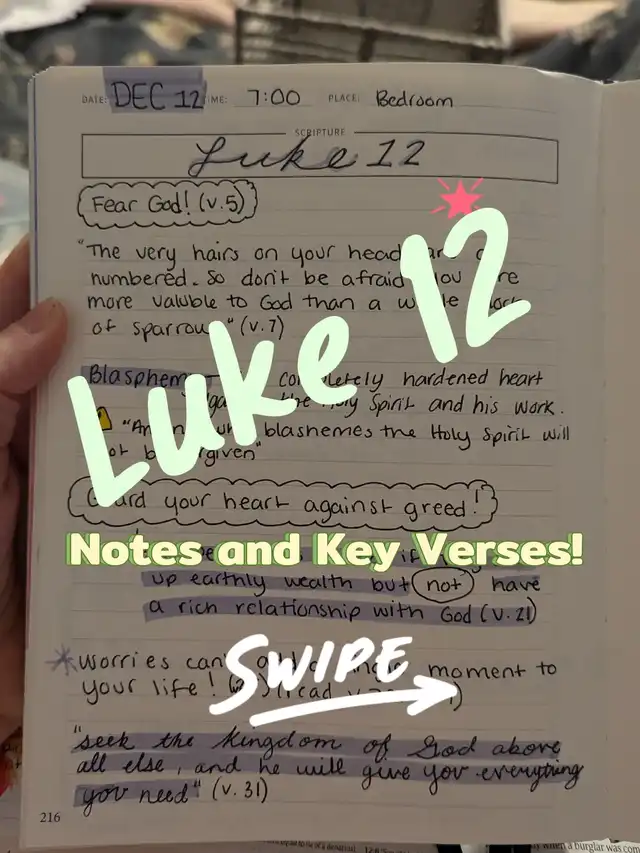 DATE: DEC 12 TIME: 7:00 PLACE: Bedroom
SCRIPTURE
Luke 12
Fear God! (v.5)
"The very hairs on your head are
numbered. So don't be afraid you are
more valuble to God than a
of sparrow " (v.7)
Luke 12
Blasphemy completely hardened heart
the Holy Spirit and his work.
blashemes the Holy Spirit will
Guard your heart against greed!
Notes and Key Verses!
up earthly wealth but not have
a rich relationship with God (v.21)
worries can moment to
SWIPE
your life!
"seek the kingdom of God above
all else, and he will give you everything
you need" (v.31)
216
when a burglar was com